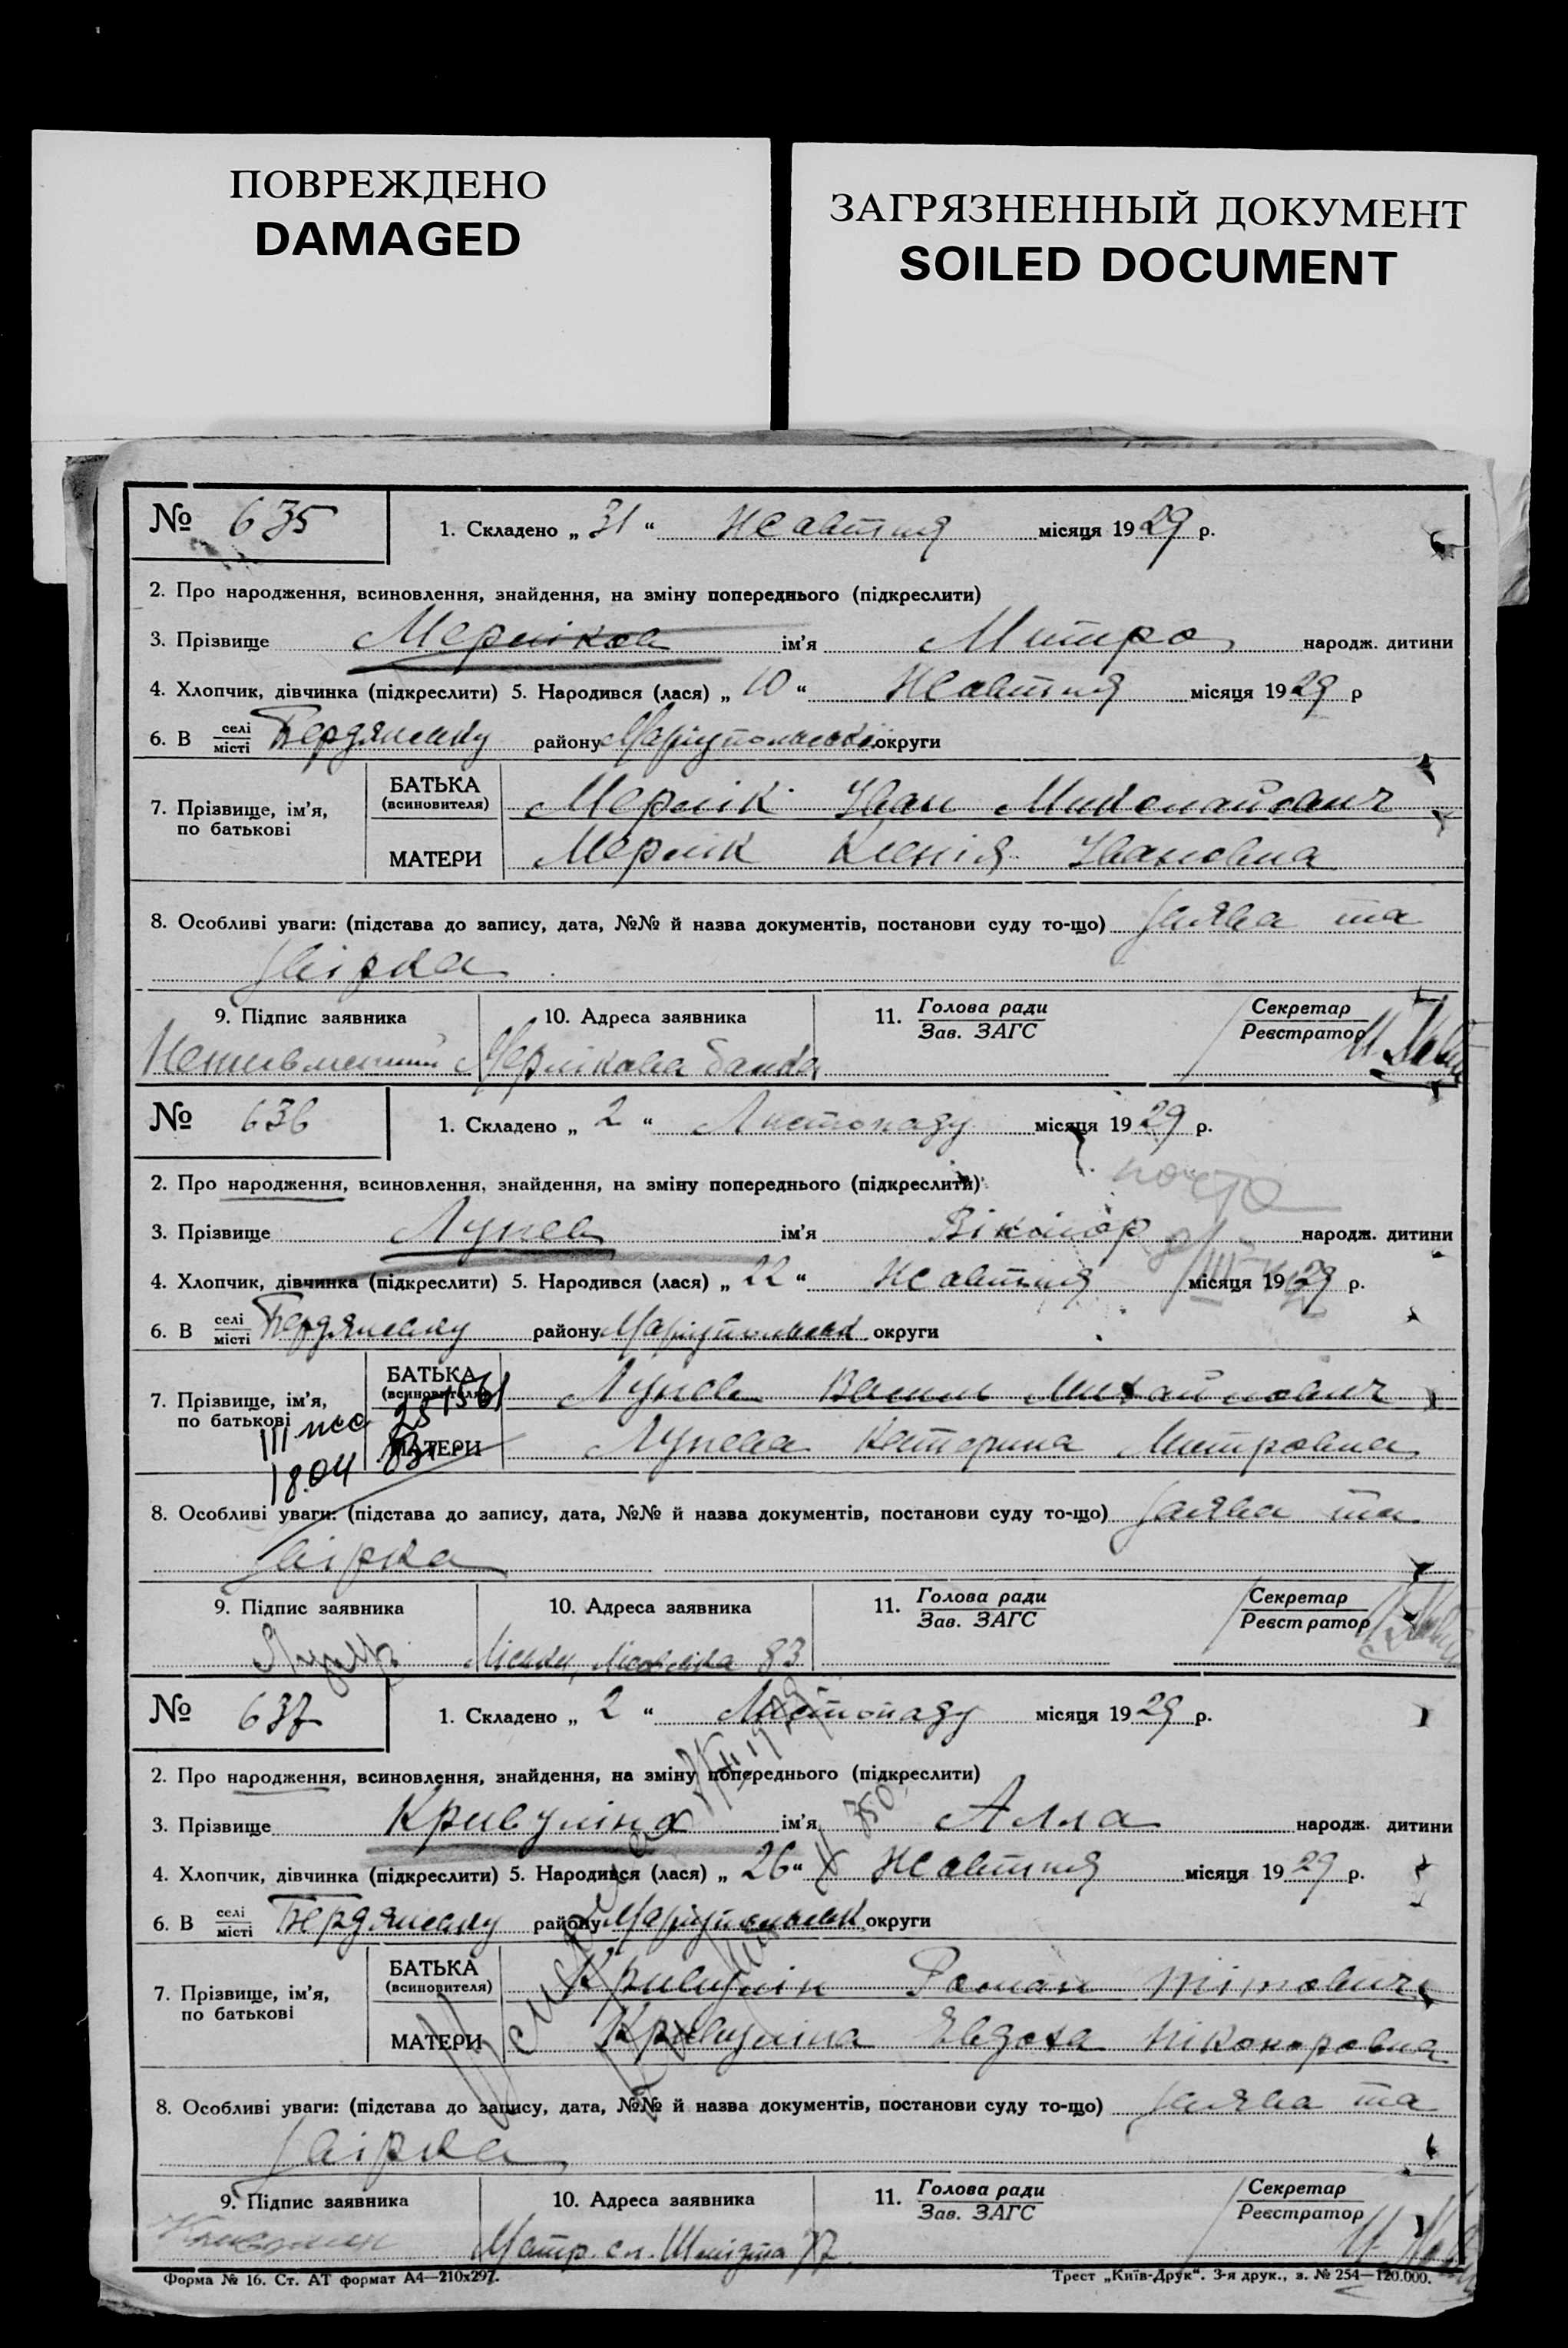 ПОВРЕЖДЕНО
DAMAGED
ЗАГРЯЗНЕННЫЙ ДОКУМЕНТ
SOILED DOCUMENT
№ 635
1. Складено „ 31 “ Жовтня місяця 1929 р.
2. Про народження, всиновлення, знайдення, на зміну попереднього (підкреслити)
3. Прізвище ім’я Митро народж. дитини
4. Хлопчик, дівчинка (підкреслити) 5. Народився (лася) „ 10 “ Жовтня місяця 1929 р
6. В селі/місті Бердянську району Маріупольської округи
7. Прізвище, ім’я, по батькові
БАТЬКА (всиновителя) Мерлік Іван Миколайович
МАТЕРИ Мерлік Ксенія Івановна
8. Особливі уваги: (підстава до запису, дата, №№ й назва документів, постанови суду то-що) Заява та
Звірка
9. Підпис заявника
10. Адреса заявника
11. Голова ради/Зав. ЗАГС
Секретар/Реєстратор
Неписьменний Мерлікова балка
№ 636
1. Складено „ 2 “ Листопаду місяця 1929 р.
2. Про народження, всиновлення, знайдення, на зміну попереднього (підкреслити)
почта
3. Прізвище Лунев ім’я Віктор народж. дитини
4. Хлопчик, дівчинка (підкреслити) 5. Народився (лася) „ 22 “ Жовтня місяця 1929 р.
6. В селі/місті Бердянську району Маріупольськ округи
7. Прізвище, ім’я, по батькові
БАТЬКА (всиновителя) Лунев Василь Михайлович
МАТЕРИ Лунева Катерина Митровна
8. Особливі уваги: (підстава до запису, дата, №№ й назва документів, постанови суду то-що) Заява та
Звірка
9. Підпис заявника
10. Адреса заявника
11. Голова ради/Зав. ЗАГС
Секретар/Реєстратор
83
№ 637
1. Складено „ 2 “ Листопаду місяця 1929 р.
2. Про народження, всиновлення, знайдення, на зміну попереднього (підкреслити)
3. Прізвище Кривуліна ім’я Алла народж. дитини
4. Хлопчик, дівчинка (підкреслити) 5. Народився (лася) „ 26 “ Жовтня місяця 1929 р.
6. В селі/місті Бердянську району Маріупольськ округи
7. Прізвище, ім’я, по батькові
БАТЬКА (всиновителя) Кривулін Роман Тітович
МАТЕРИ Кривуліна Евдоха Ніконоровна
8. Особливі уваги: (підстава до запису, дата, №№ й назва документів, постанови суду то-що) Заява та
Звірка
9. Підпис заявника
10. Адреса заявника
11. Голова ради/Зав. ЗАГС
Секретар/Реєстратор
Шмідта 77
Форма № 16. Ст. АТ формат А4—210х297.
Трест „Київ-Друк“. 3-я друк., з. № 254—120.000.